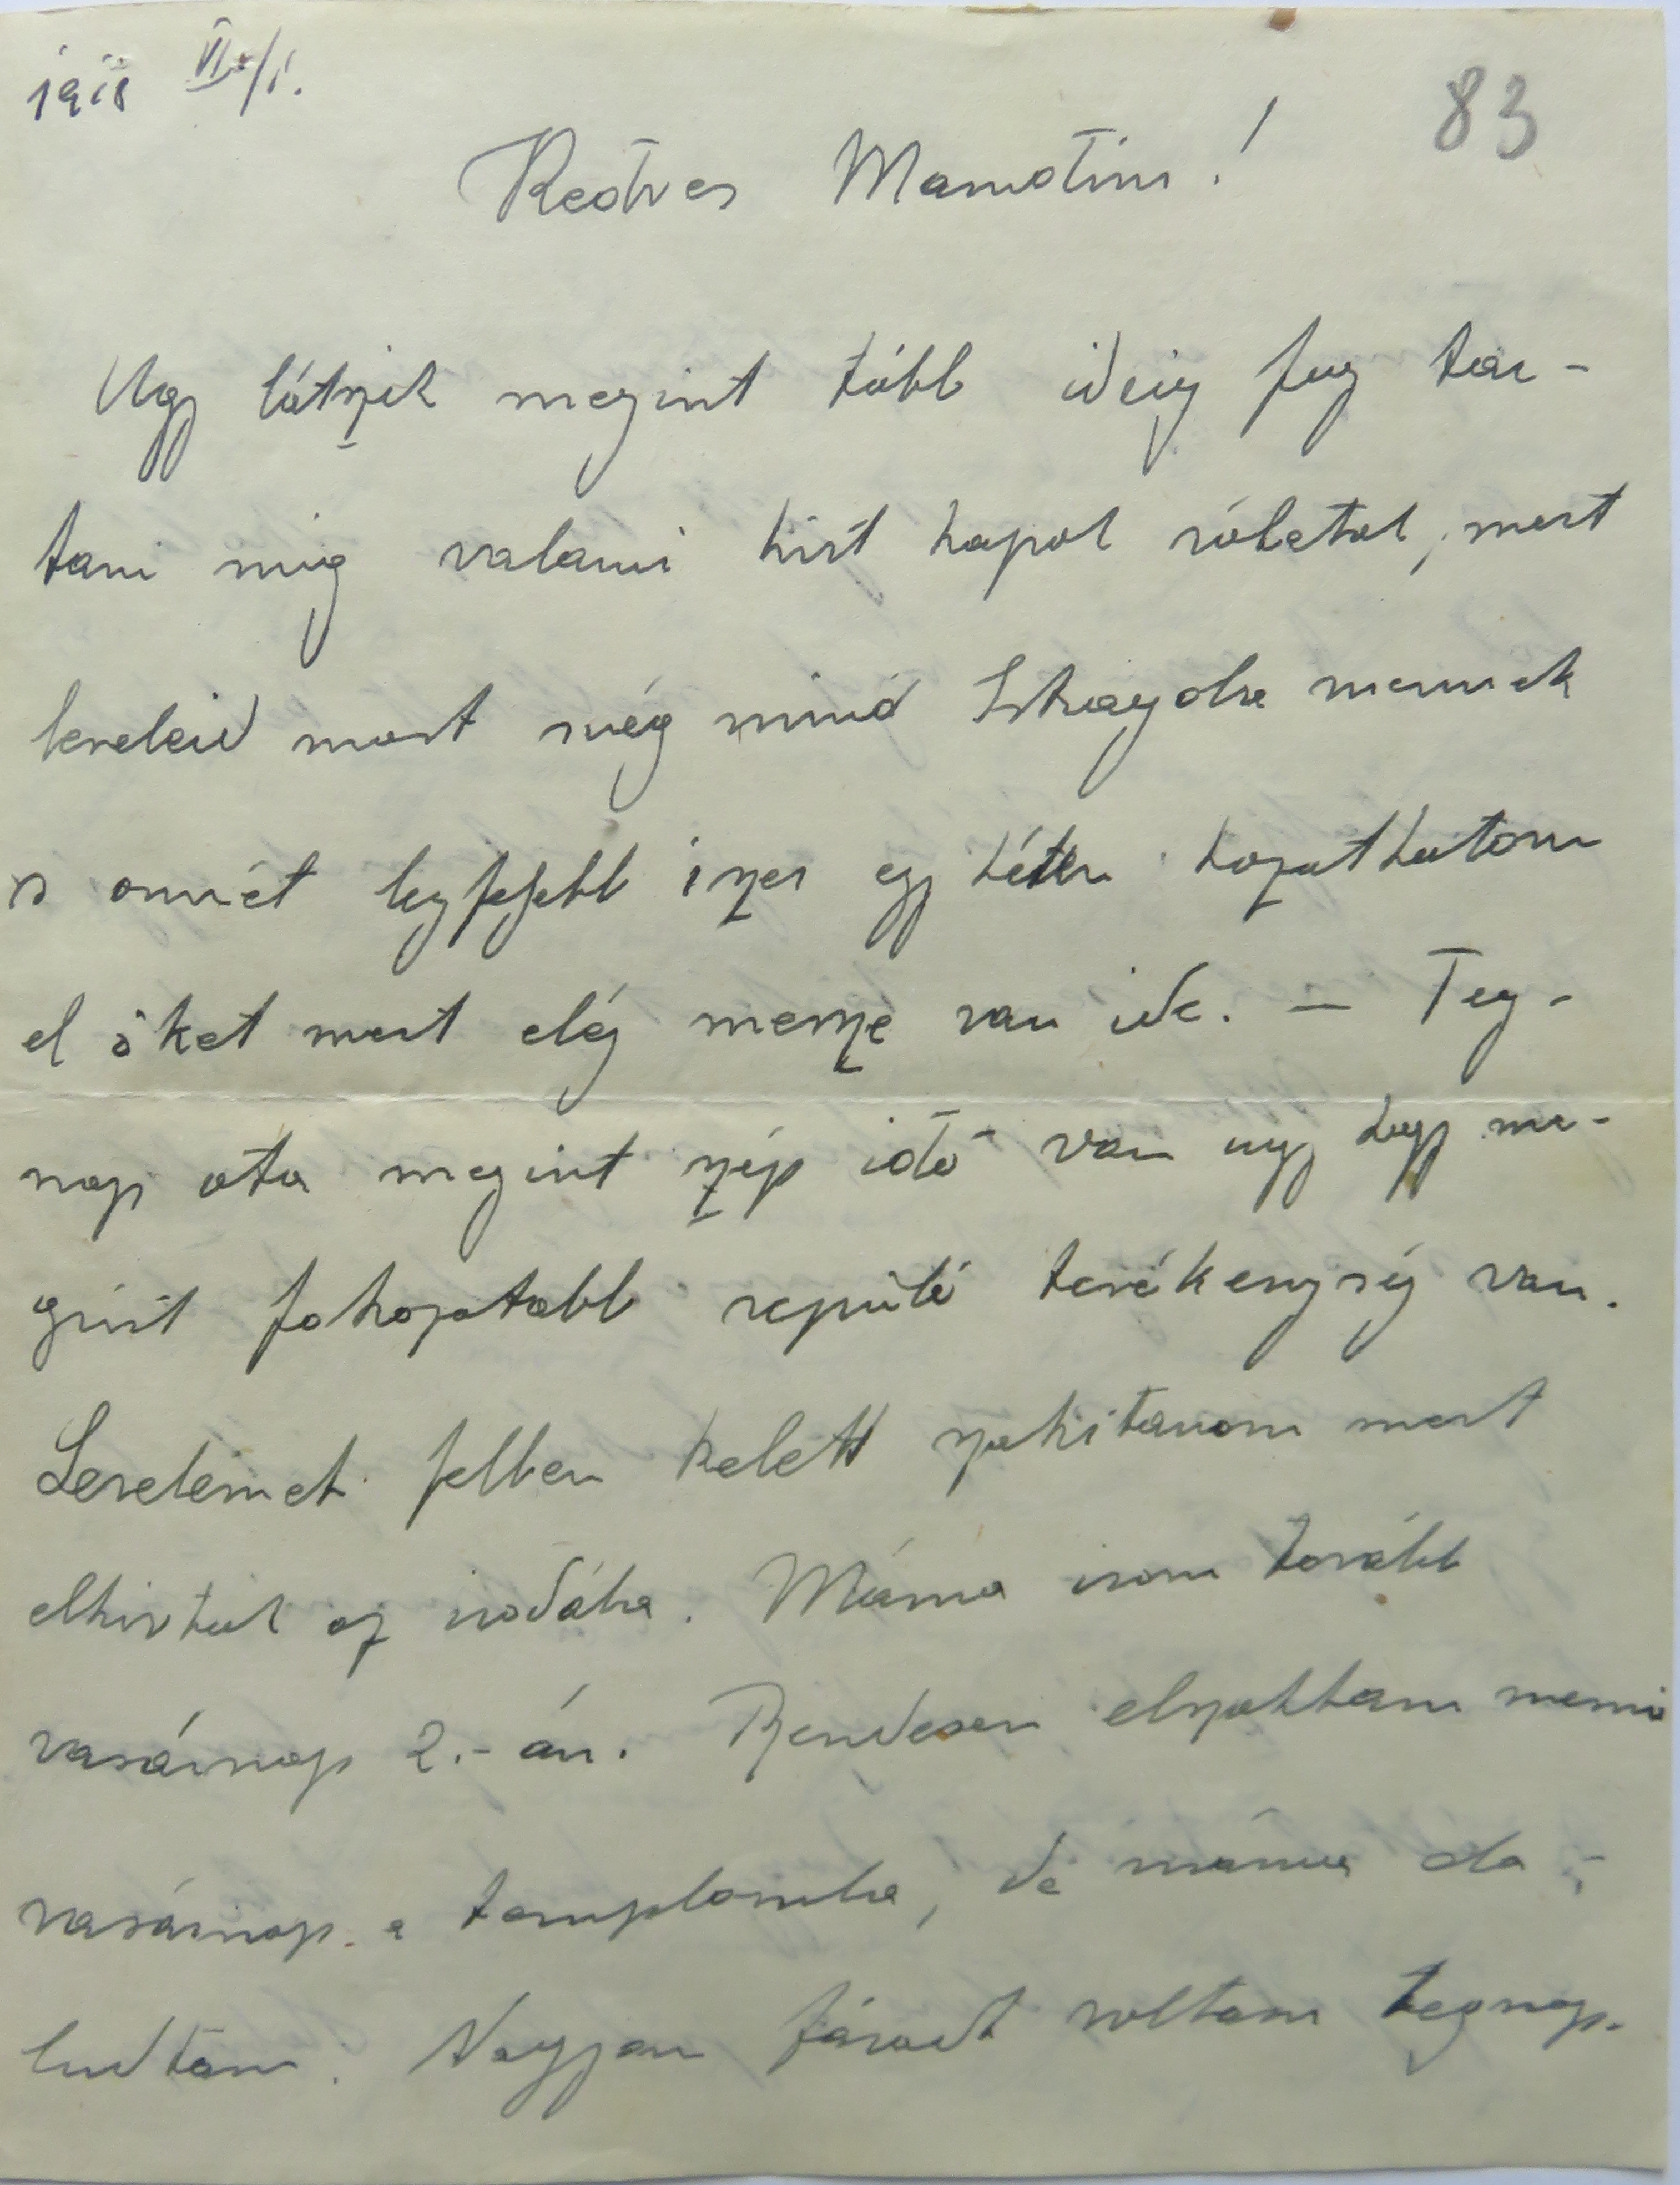 1918 VI./1.
83
Kedves Mamotim!
Ugy látszik megint több ideig fog tar-
tani mig valami hirt kapok rólatok, mert
leveleid most még mind Ishagolra mennek
s onnét legfeljebb 1szer egy héten hozathatom
el őket mert elég messze van ide. — Teg-
nap ota megint szép idő van ugy hogy me-
gint fokozotabb repülő tevékenység van.
Levelemet felben kelett szakitanom mert
elhivtak az irodába. Máma irom tovább
vasárnap 2.-án. Rendesen elszoktam menni
vasárnap a templomba, de máma ela-
ludtam. Nagyon fáradt voltam tegnap.